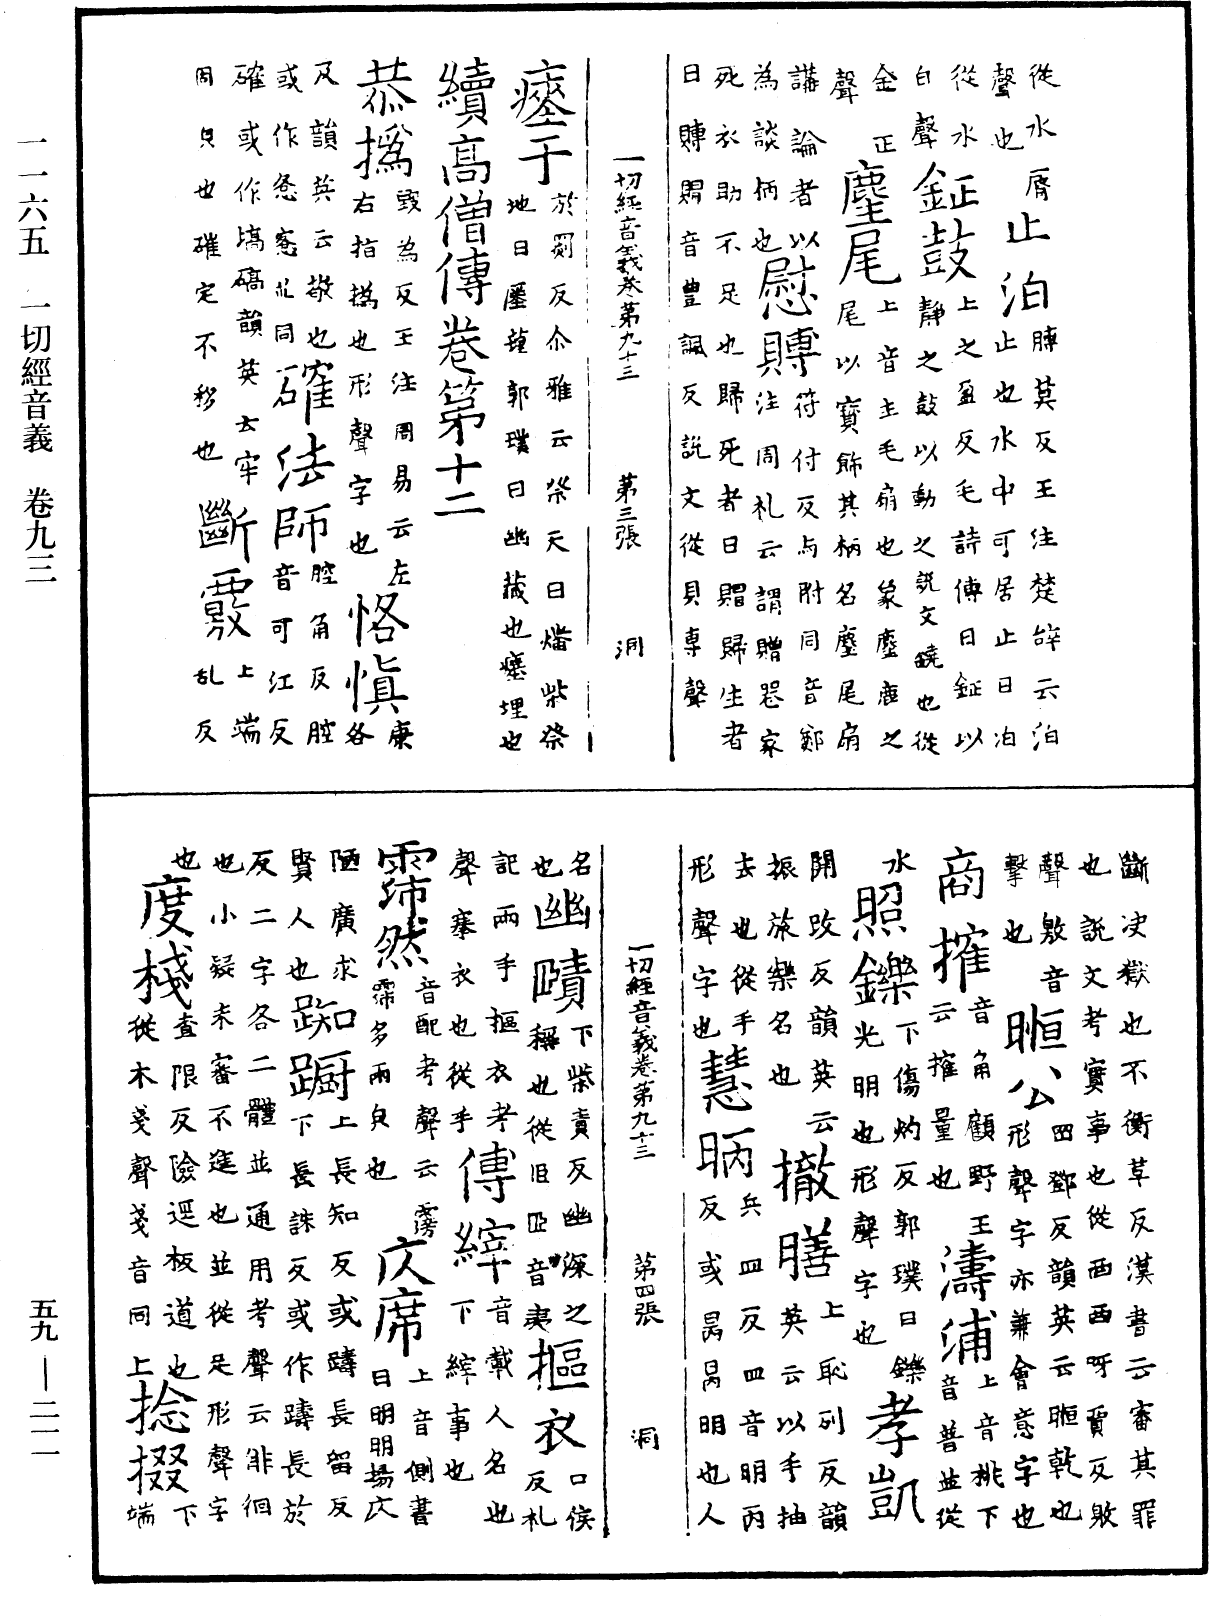 一一六五　一切經音義　卷九三
從水脣
聲也
止泊
膊莫反王注楚辝云泊
止也水中可居止曰泊
從水
白聲
鉦鼓
上之盈反毛詩傳曰鉦以
靜之鼓以動之説文鐃也從
金正
聲
麈尾
上音主毛扇也象麈鹿之
尾以寶飾其柄名麈尾扇
講論者以
為談柄也
慰賻
符付反与附同音鄭
注周礼云謂贈喪家
死衣助不足也歸死者曰賵歸生者
曰賻賵音豊諷反説文從貝専聲
一切經音義卷第九十三　第三張　洞
瘞于
於罽反尒雅云祭天曰燔柴祭
地曰瘞薶郭璞曰幽藏也瘞埋也
續高僧傳卷第十二
恭撝
毀為反王注周易云左
右指撝也形聲字也
恪慎
康
各
及韻英云敬也
或作愙窓並同
確法師
腔角反腔
音可江反
確或作塙碻韻英云牢
固皃也確定不移也
斷覈
上端
乱反
斷決獄也不衡草反漢書云審其罪
也説文考實事也從襾襾呀賈反敫
聲敫音
擊也
暅公
罒鄧反韻英云暅乾也
形聲字亦兼會意字也
商搉
音角顧野王
云搉量也
濤浦
上音桃下
音普並從
水
照鑠
下傷灼反郭璞曰鑠
光明也形聲字也
孝凱
開改反韻英云
振旅樂名也
撤膳
上恥列反韻
英云以手抽
去也從手
形聲字也
慧昞
兵皿反皿音明丙
反或昺昺明也人
一切經音義卷第九十三　第四張　洞
名
也
幽賾
下柴責反幽深之
稱也從𦣞𦣞音夷
摳衣
口侯
反礼
記兩手摳衣考
聲褰衣也從手
傅縡
音載人名也
下縡事也
霈然
音配考聲云霶
霈多雨皃也
仄席
上音側書
曰明明揚仄
陋廣求
賢人也
踟蹰
上長知反或躊長留反
下長誅反或作躇長於
反二字各二體並通用考聲云徘徊
也小疑未審不進也並從足形聲字
也
度棧
查限反險逕板道也
從木戔聲戔音同上
捻掇
下
端
五九—二一一